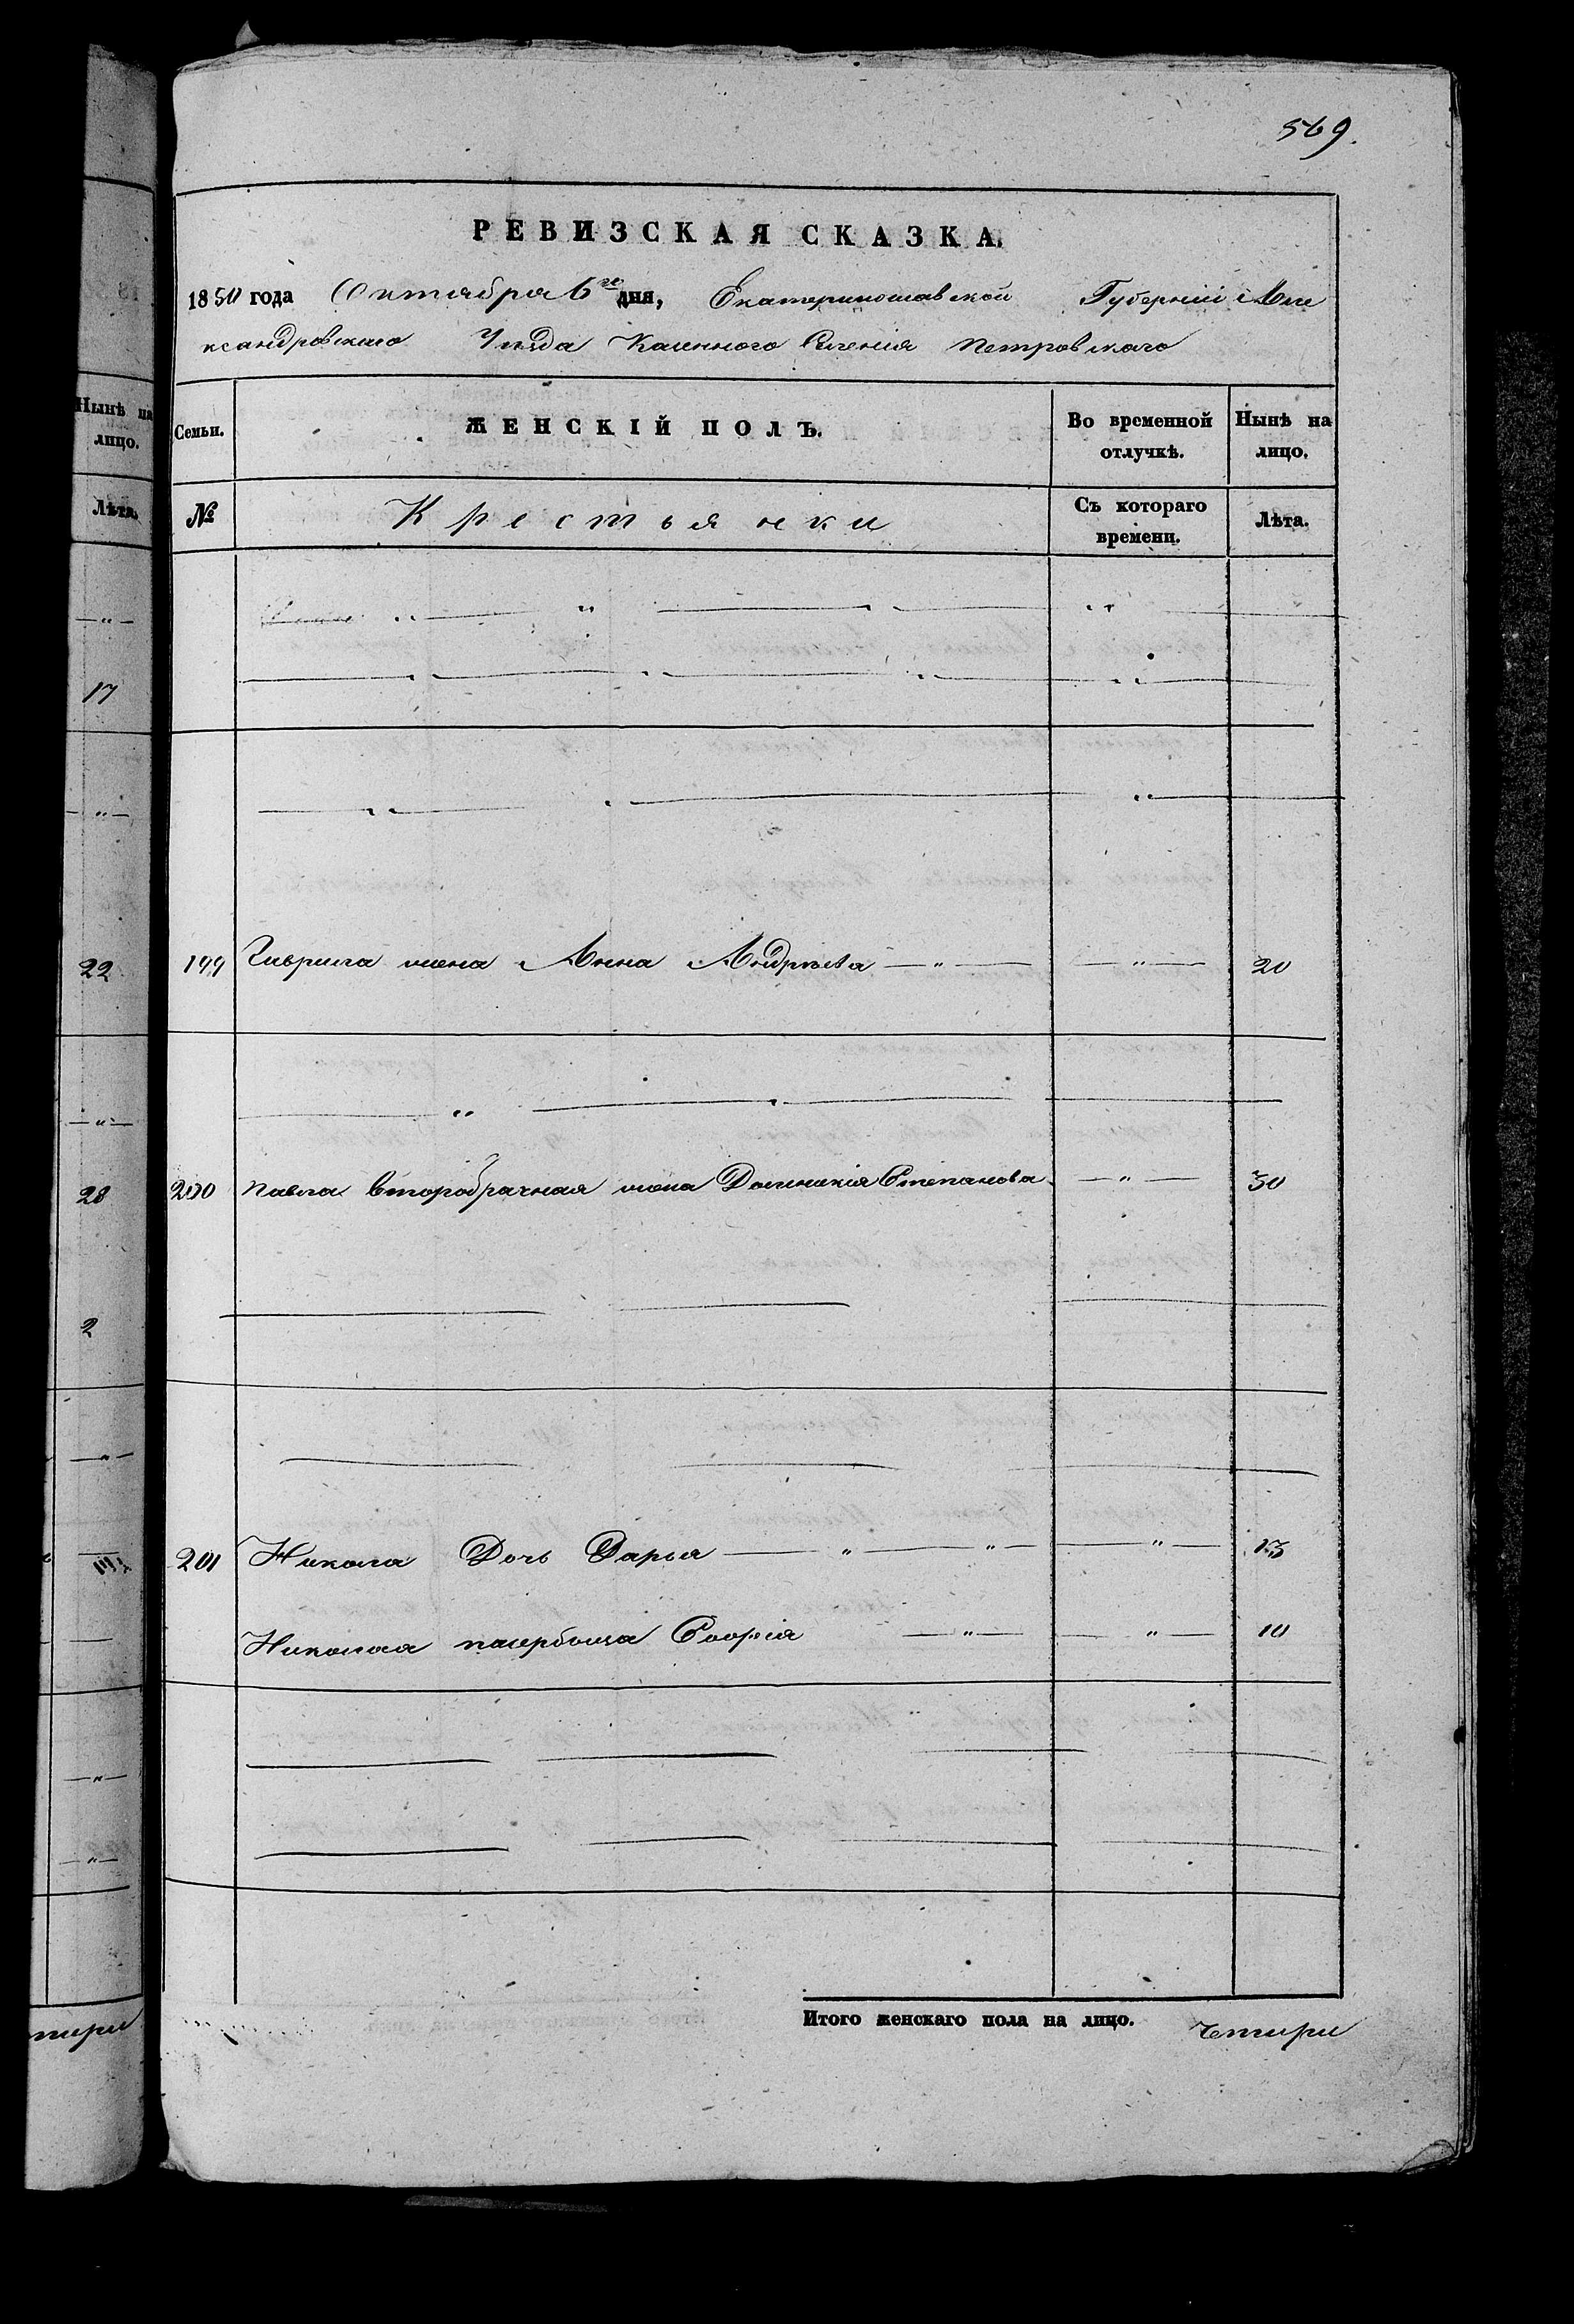 569.
РЕВИЗСКАЯ СКАЗКА.
1850 года Октября 6го дня, Екатериносшавской Губерніи Але
ксандровскаго Уезда Казенного Селенія Петровскаго
Нынѣ на лицо.
Лѣта.
— " —
17
— " —
22
— " —
28
2
— " —
— " —
— " —
тири
Семьи. ЖЕНСКІЙ ПОЛЪ. Во временной отлучкѣ. Нынѣ на лицо.
№ Крестьянки Съ котораго времени. Лѣта.
199 Гаврила жена Анна Андрѣева — " — — " — 20
200 Павла второбрачная жена Степанова — " — 30
201 Никола Дочь Дарья — " — " — — " — 13
Николая пасербица Софія — " — — " — 10
Итого женскаго пола на лицо. Четири